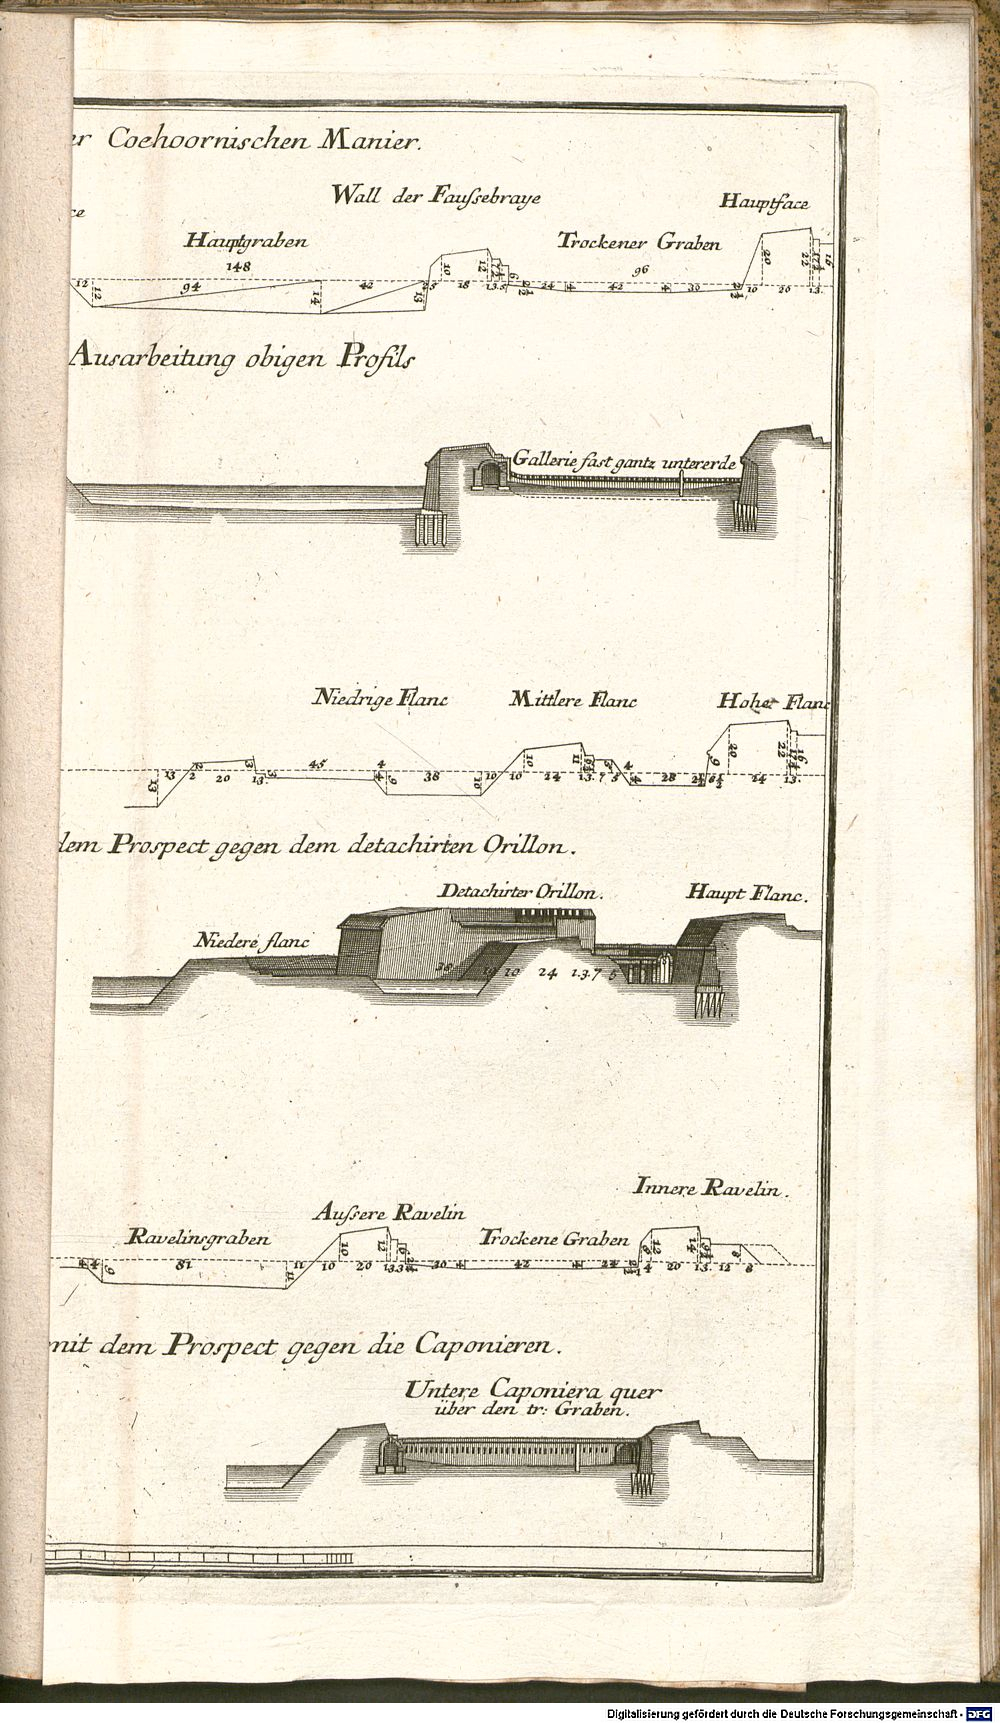 er Coehoornischen Manier.
Wall der Faussebraye
Hauptface
ce
Hauptgraben
Trockener Graben
148
96
10 12 6 20 22 17½ 16
12 12 94 14 42 13 18 1.3.5 2½ 24 4 42 4 30 2½ 10 20 1.3.
Ausarbeitung obigen Profils
Gallerie fast gantz untererde
Niedrige Flanc
Mittlere Flanc
Hoher Flanc
13 13 2 2 20 3 13 3 45 4 4 9 38 10 10 10 10 24 11 1.3. 7 5 5 4 4 28 2½ 6½ 9 20 24 22 1.3. 16
dem Prospect gegen dem detachirten Orillon.
Detachirter Orillon.
Haupt Flanc.
Niedere flanc
38 10 10 24 1.3.7 5
Innere Ravelin.
Aussere Ravelin
Ravelinsgraben
Trockene Graben
4 4 9 81 11 11 10 10 20 12 1.3.3 30 4 42 4 24 2½ 4 9 12 20 14 1.3. 12 8 8
mit dem Prospect gegen die Caponieren.
Untere Caponiera quer
über den tr: Graben.
Digitalisierung gefördert durch die Deutsche Forschungsgemeinschaft - DFG